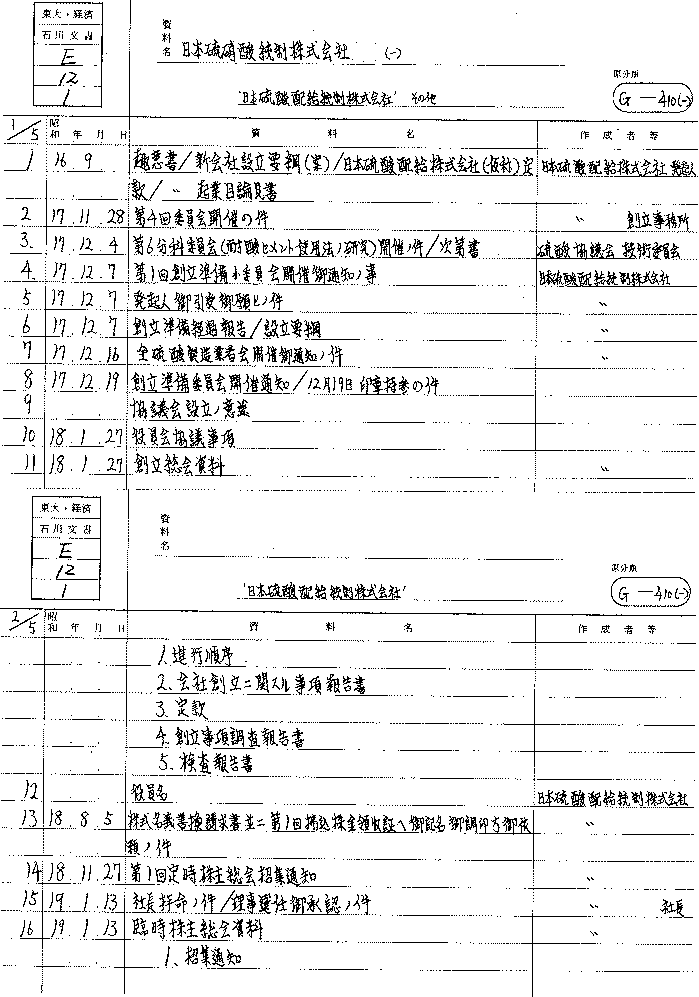 東大・経済
石川文書
E
12
1
資料名 日本硫硝酸統制株式会社 (一)
'日本硫酸配給統制株式会社' その他
原分類
G-410(一)
1/5 昭和 年 月 日 資料名 作成者等
1 16 9 趣意書/新会社設立要綱(案)/日本硫酸配給株式会社(仮称)定 日本硫酸配給株式会社 発起人
款/ 〃 起業目論見書
2 17 11 28 第4回委員会開催の件 〃 創立事務所
3 17 12 4 第6分科委員会(耐酸セメント使用法ノ研究)開催ノ件/次第書 硫酸協議会 技術委員会
4 17 12 7 第1回創立準備小委員会開催御通知ノ事 日本硫酸配給統制株式会社
5 17 12 7 発起人御引受御願ヒノ件 〃
6 17 12 7 創立準備経過報告/設立要綱 〃
7 17 12 16 全硫酸製造業者会開催御通知ノ件 〃
8 17 12 19 創立準備委員会開催通知/12月19日印章持参の件
9 協議会設立ノ意義
10 18 1 27 役員会協議事項
11 18 1 27 創立総会資料 〃
東大・経済
石川文書
E
12
1
資料名
'日本硫酸配給統制株式会社'
原分類
G-410(一)
2/5 昭和 年 月 日 資料名 作成者等
1. 進行順序
2. 会社創立ニ関スル事項報告書
3. 定款
4. 創立事項調査報告書
5. 検査報告書
12 役員名 日本硫酸配給統制株式会社
13 18 8 5 株式名義書換請求書並ニ第1回払込株金領収証ヘ御記名御調印方御依 〃
頼ノ件
14 18 11 27 第1回定時株主総会招集通知 〃
15 19 1 13 社長拝命ノ件/理事選任御承認ノ件 〃 社長
16 19 1 13 臨時株主総会資料 〃
1. 招集通知